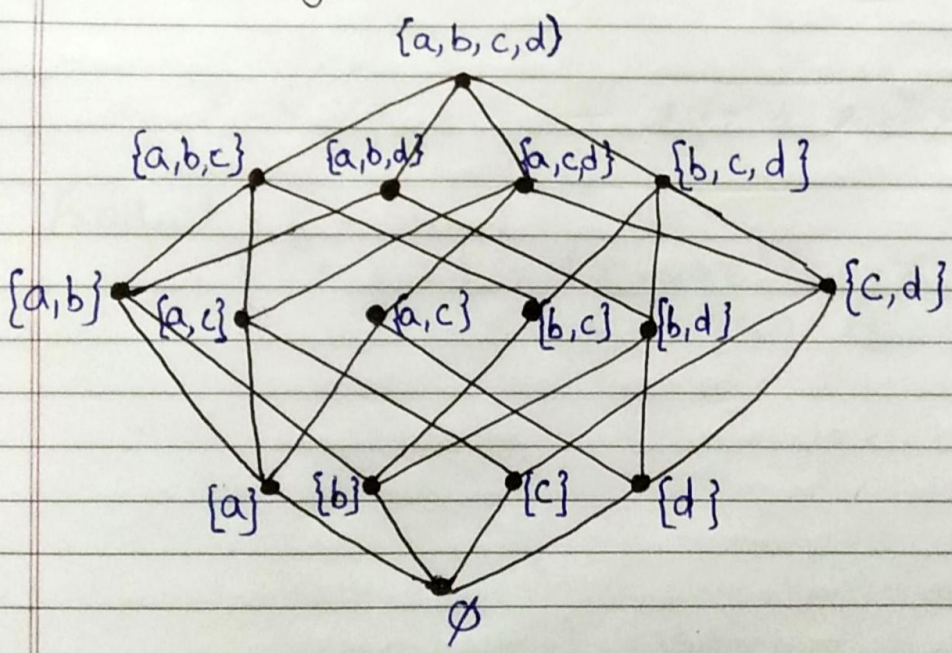 {a,b,c,d}
{a,b,c} {a,b,d} {a,c,d} {b,c,d}
{a,b} {a,c} {a,c} {b,c} {b,d} {c,d}
{a} {b} {c} {d}
∅